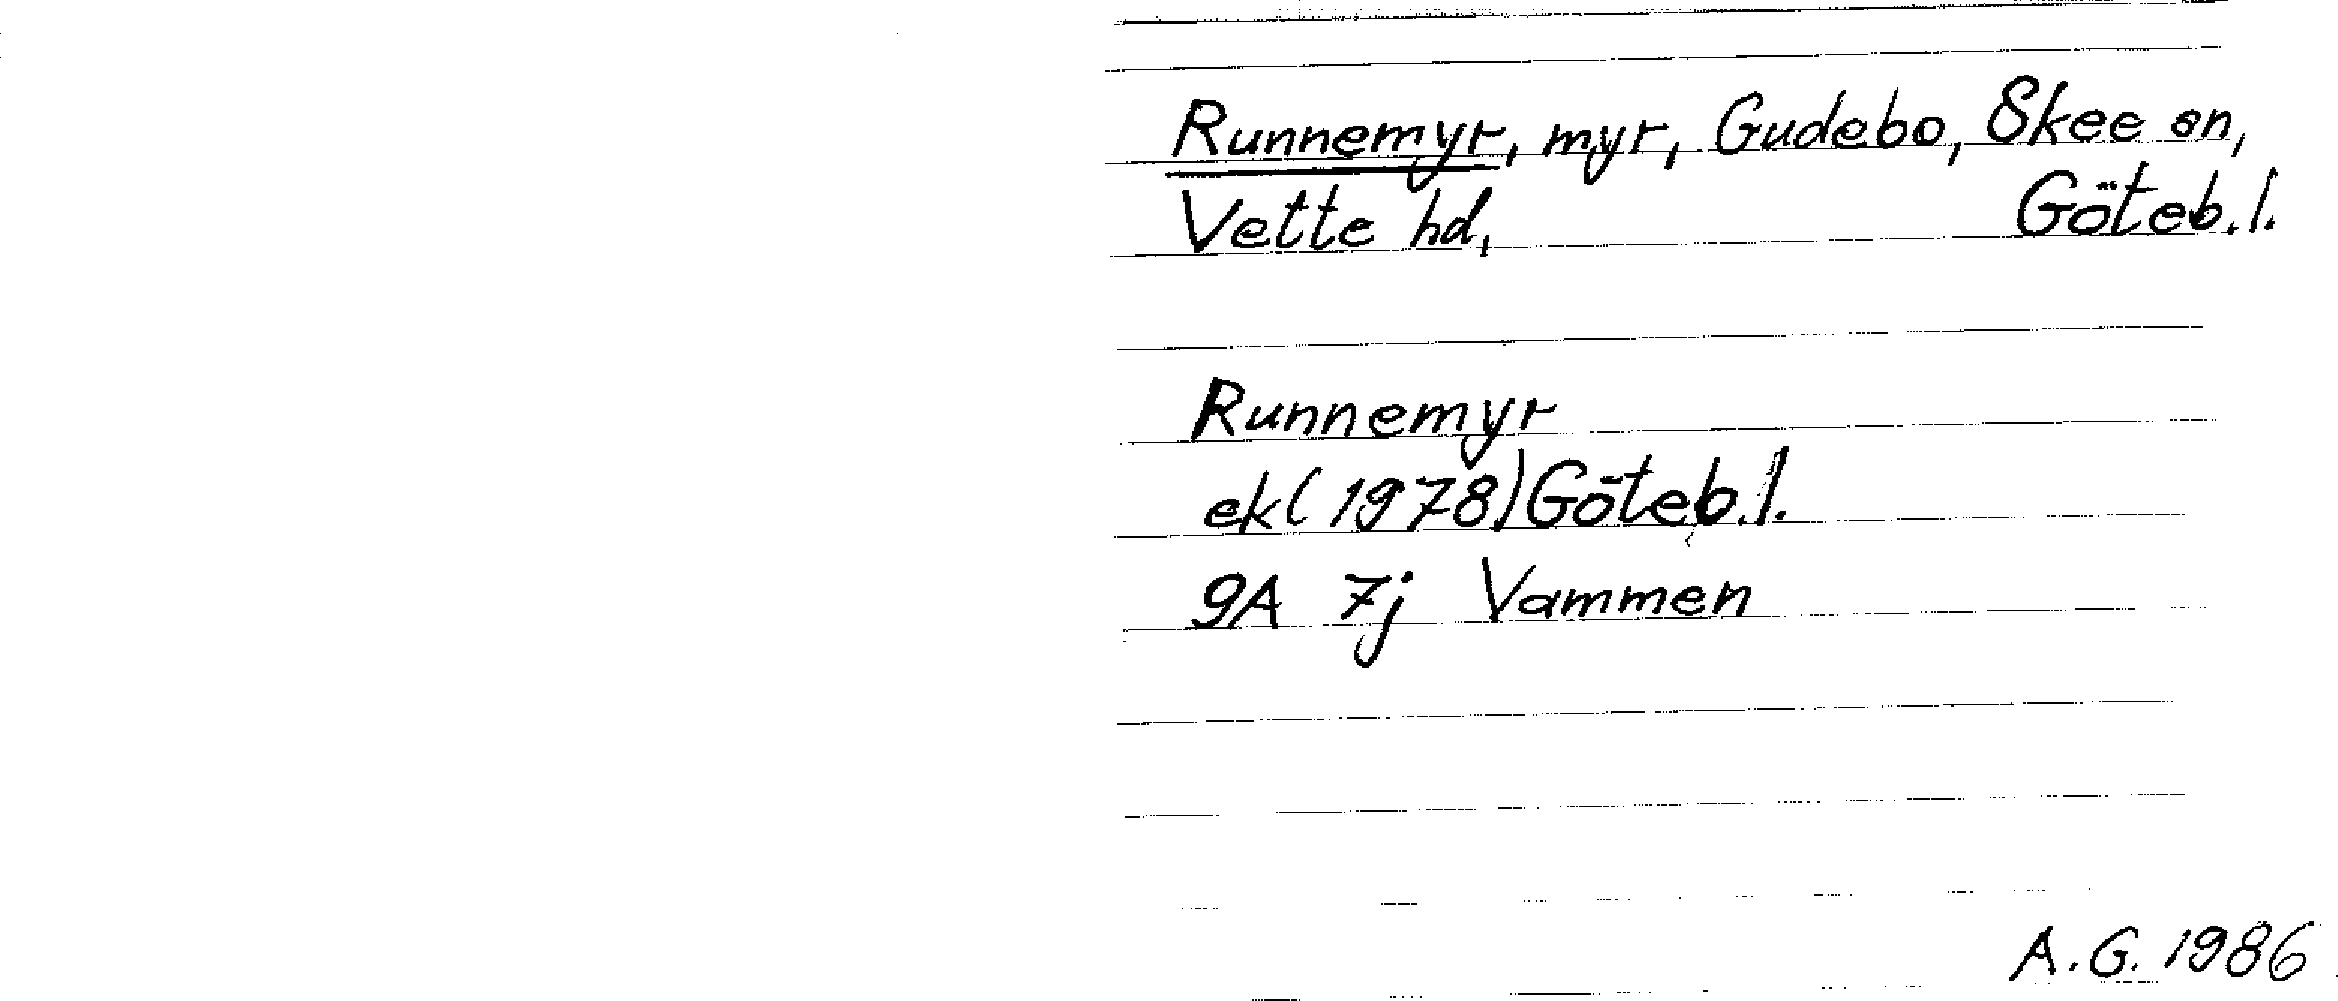 Runnemyr, myr, Gudebo, Skee sn,
Vette hd, Göteb.l.
Runnemyr
ek(1978)Göteb.l.
9A 7j Vammen
A.G. 1986